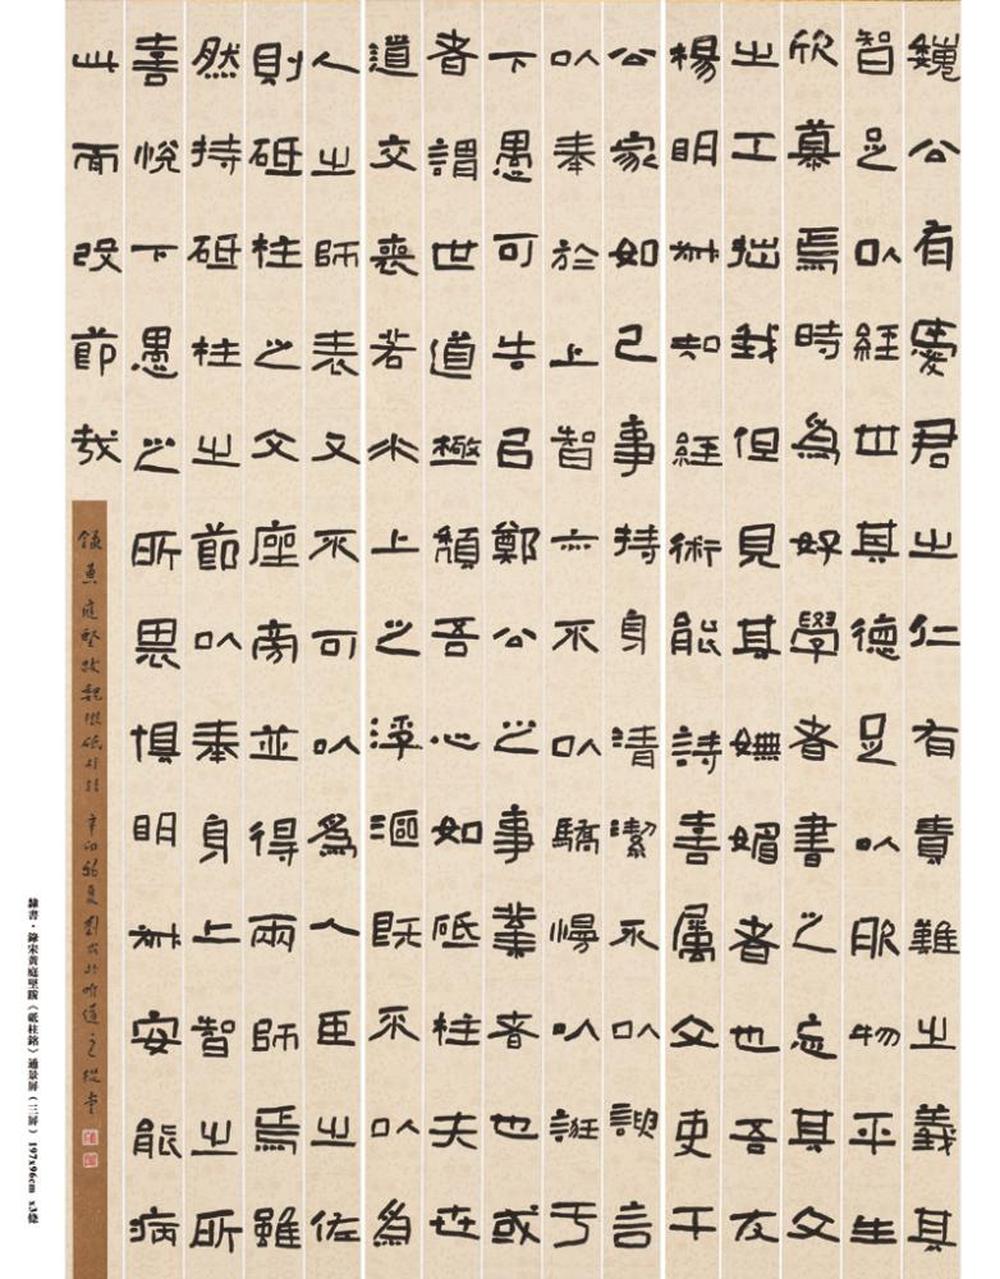 魏公有愛君之仁有責難之義其
智足以經世其德足以服物平生
欣慕焉時為好學者書之忘其文
之工拙我但見其嫵媚者也吾友
楊明叔知經術能詩喜屬文吏干
公家如己事持身清潔不以諛言
以奉於上智亦不以驕慢以誑于
下愚可告㠯鄭公之事業者也或
者謂世道極頹吾心如砥柱夫世
道交喪若水上之浮漚既不以為
人之師表又不可以為人臣之佐
則砥柱之文座旁並得兩師焉雖
然持砥柱之節以奉身上智之所
喜悅下愚之所畏懼明叔安能病
此而改節哉
錄黃庭堅跋魏徵砥柱銘 辛卯 夏 劉
隸書·錄宋黃庭堅跋《砥柱銘》通景屏（三屏） 197x96cm x3條